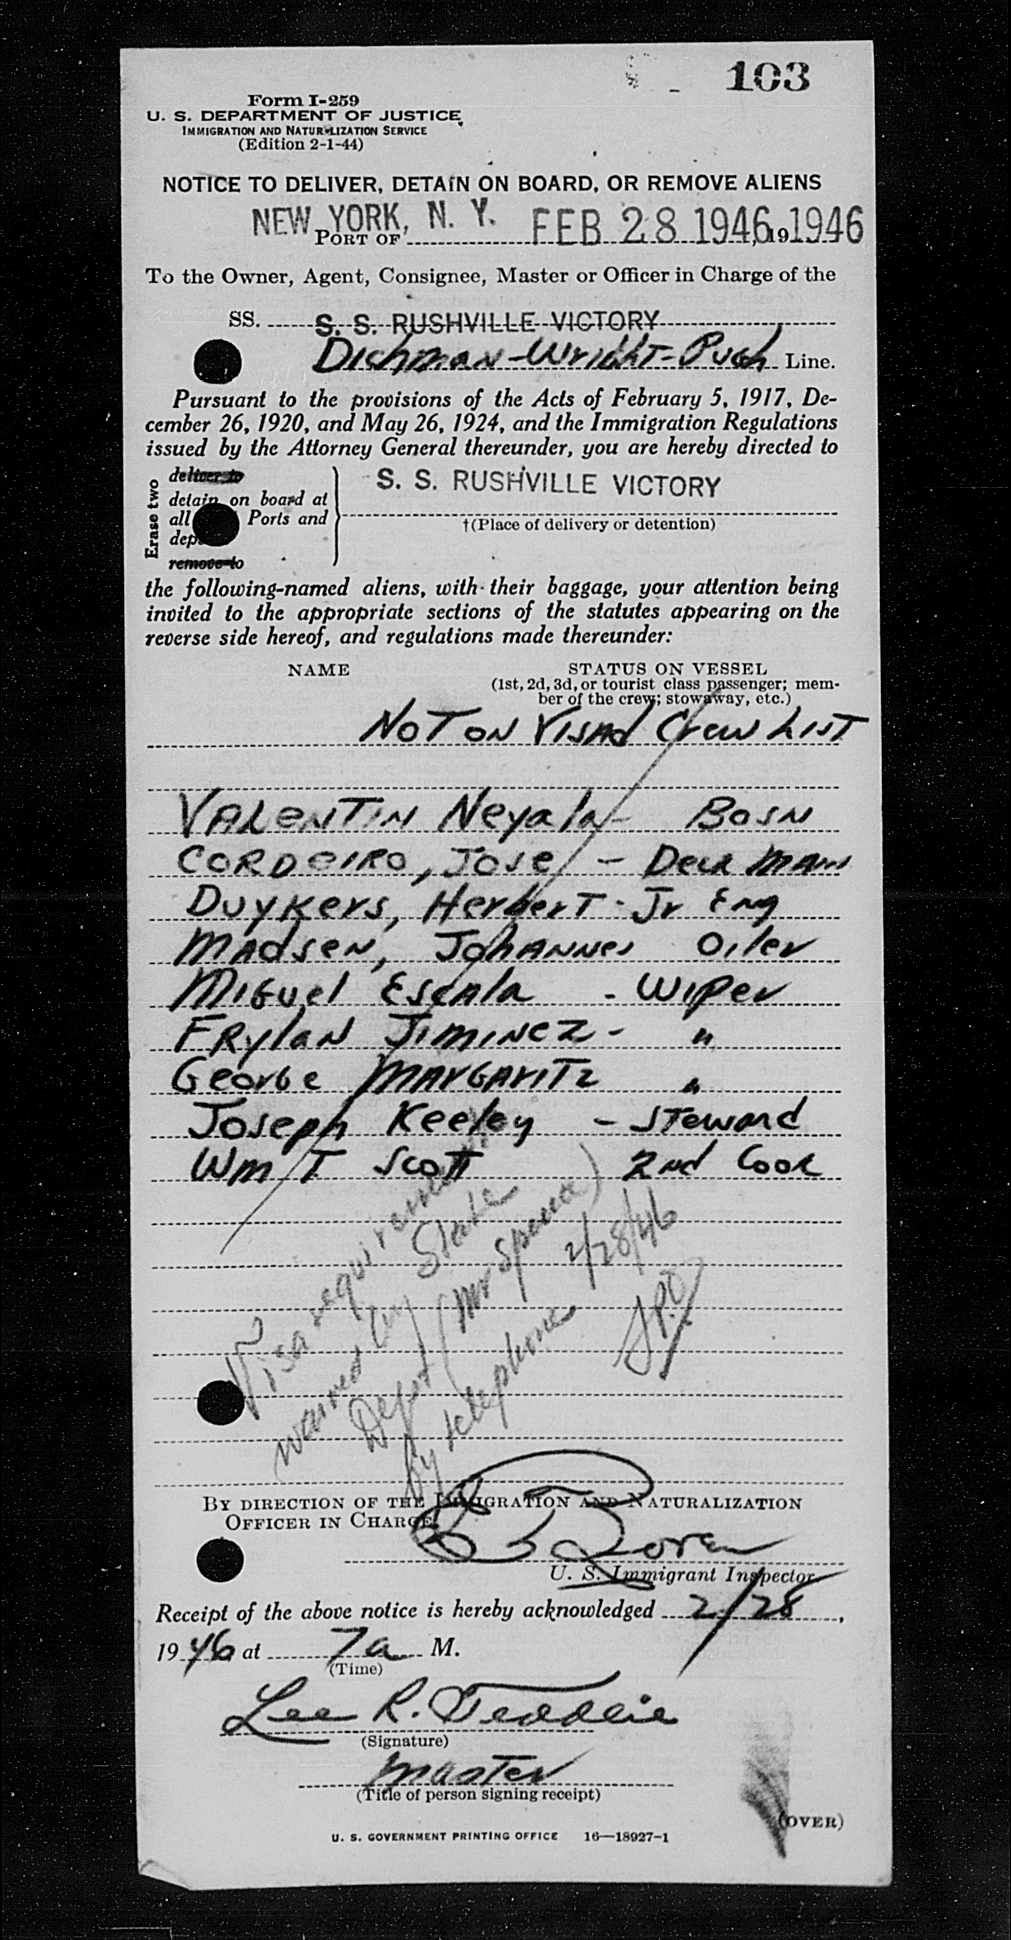 103
Form I-259
U. S. DEPARTMENT OF JUSTICE
IMMIGRATION AND NATURALIZATION SERVICE
(Edition 2-1-44)
NOTICE TO DELIVER, DETAIN ON BOARD, OR REMOVE ALIENS
NEW YORK, N. Y. FEB 28 1946 1946
PORT OF , 19
To the Owner, Agent, Consignee, Master or Officer in Charge of the
SS. S. S. RUSHVILLE VICTORY
Dichman-Wright-Pugh Line.
Pursuant to the provisions of the Acts of February 5, 1917, De-
cember 26, 1920, and May 26, 1924, and the Immigration Regulations
issued by the Attorney General thereunder, you are hereby directed to
Erase two
deliver to
detain on board at
all Ports and
dep
remove to
S. S. RUSHVILLE VICTORY
†(Place of delivery or detention)
the following-named aliens, with their baggage, your attention being
invited to the appropriate sections of the statutes appearing on the
reverse side hereof, and regulations made thereunder:
NAME STATUS ON VESSEL
(1st, 2d, 3d, or tourist class passenger; mem-
ber of the crew; stowaway, etc.)
NOT ON VISAd Crew LIST
VALENTIN Neyala - BOSN
CORDEIRO, JOSE - Deck MAN
Duykers, HerberT - Jr Eng
MAdsen, JOhANNes Oiler
MIGuel EscAla - WIPer
FRylaN JIMINEZ - "
GeorGe MARGARITZ "
Joseph Keeley - STeward
Wm T Scott 2nd Cook
Visa requirements
waived by State
Dept (Mr )
by telephone 2/28/46
BY DIRECTION OF THE IMMIGRATION AND NATURALIZATION
OFFICER IN CHARGE.
U. S. Immigrant Inspector
Receipt of the above notice is hereby acknowledged 2/28,
19 46 at 7 a M.
(Time)
Lee R.
(Signature)
master
(Title of person signing receipt)
(OVER)
U. S. GOVERNMENT PRINTING OFFICE 16—18927-1